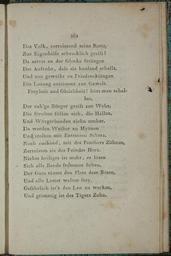 262
Das Volk, zerreissend seine Kette,
Zur Eigenhilfe schrecklich greift!
Da zerret an der Glocke Strängen
Der Aufruhr, daß sie heulend schallt,
Und nur geweiht zu Friedensklängen
Die Losung anstimmt zur Gewalt.
Freyheit und Gleichheit! hört man schal-
len,
Der ruh'ge Bürger greift zur Wehr,
Die Straßen füllen sich, die Hallen,
Und Würgerbanden ziehn umher,
Da werden Weiber zu Hyänen
Und treiben mit Entsetzen Scherz,
Noch zuckend, mit des Panthers Zähnen,
Zerreissen sie des Feindes Herz.
Nichts heiliges ist mehr, es lösen
Sich alle Bande frommer Scheu,
Der Gute räumt den Platz dem Bösen,
Und alle Laster walten frey.
Gefährlich ist's den Leu zu wecken,
Und grimmig ist des Tigers Zahn,